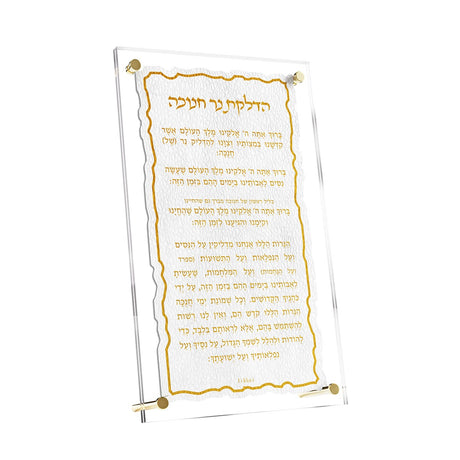 הדלקת נר חנוכה
בָּרוּךְ אַתָּה ה' אֱלֹקֵינוּ מֶלֶךְ הָעוֹלָם אֲשֶׁר
קִדְּשָׁנוּ בְּמִצְוֹתָיו וְצִוָּנוּ לְהַדְלִיק נֵר (שֶׁל)
חֲנֻכָּה:
בָּרוּךְ אַתָּה ה' אֱלֹקֵינוּ מֶלֶךְ הָעוֹלָם שֶׁעָשָׂה
נִסִּים לַאֲבוֹתֵינוּ בַּיָּמִים הָהֵם בַּזְּמַן הַזֶּה:
בליל ראשון של חנוכה מברך גם שהחיינו
בָּרוּךְ אַתָּה ה' אֱלֹקֵינוּ מֶלֶךְ הָעוֹלָם שֶׁהֶחֱיָנוּ
וְקִיְּמָנוּ וְהִגִּיעָנוּ לַזְּמַן הַזֶּה:
הַנֵּרוֹת הַלָּלוּ אֲנַחְנוּ מַדְלִיקִין עַל הַנִּסִּים
וְעַל הַנִּפְלָאוֹת וְעַל הַתְּשׁוּעוֹת (ספרד
ועל הנחמות) וְעַל הַמִּלְחָמוֹת, שֶׁעָשִׂיתָ
לַאֲבוֹתֵינוּ בַּיָּמִים הָהֵם בַּזְּמַן הַזֶּה, עַל יְדֵי
כֹּהֲנֶיךָ הַקְּדוֹשִׁים. וְכָל שְׁמוֹנַת יְמֵי חֲנֻכָּה
הַנֵּרוֹת הַלָּלוּ קֹדֶשׁ הֵם, וְאֵין לָנוּ רְשׁוּת
לְהִשְׁתַּמֵּשׁ בָּהֶם, אֶלָּא לִרְאוֹתָם בִּלְבָד, כְּדֵי
לְהוֹדוֹת וּלְהַלֵּל לְשִׁמְךָ הַגָּדוֹל, עַל נִסֶּיךָ וְעַל
נִפְלְאוֹתֶיךָ וְעַל יְשׁוּעָתֶךָ: